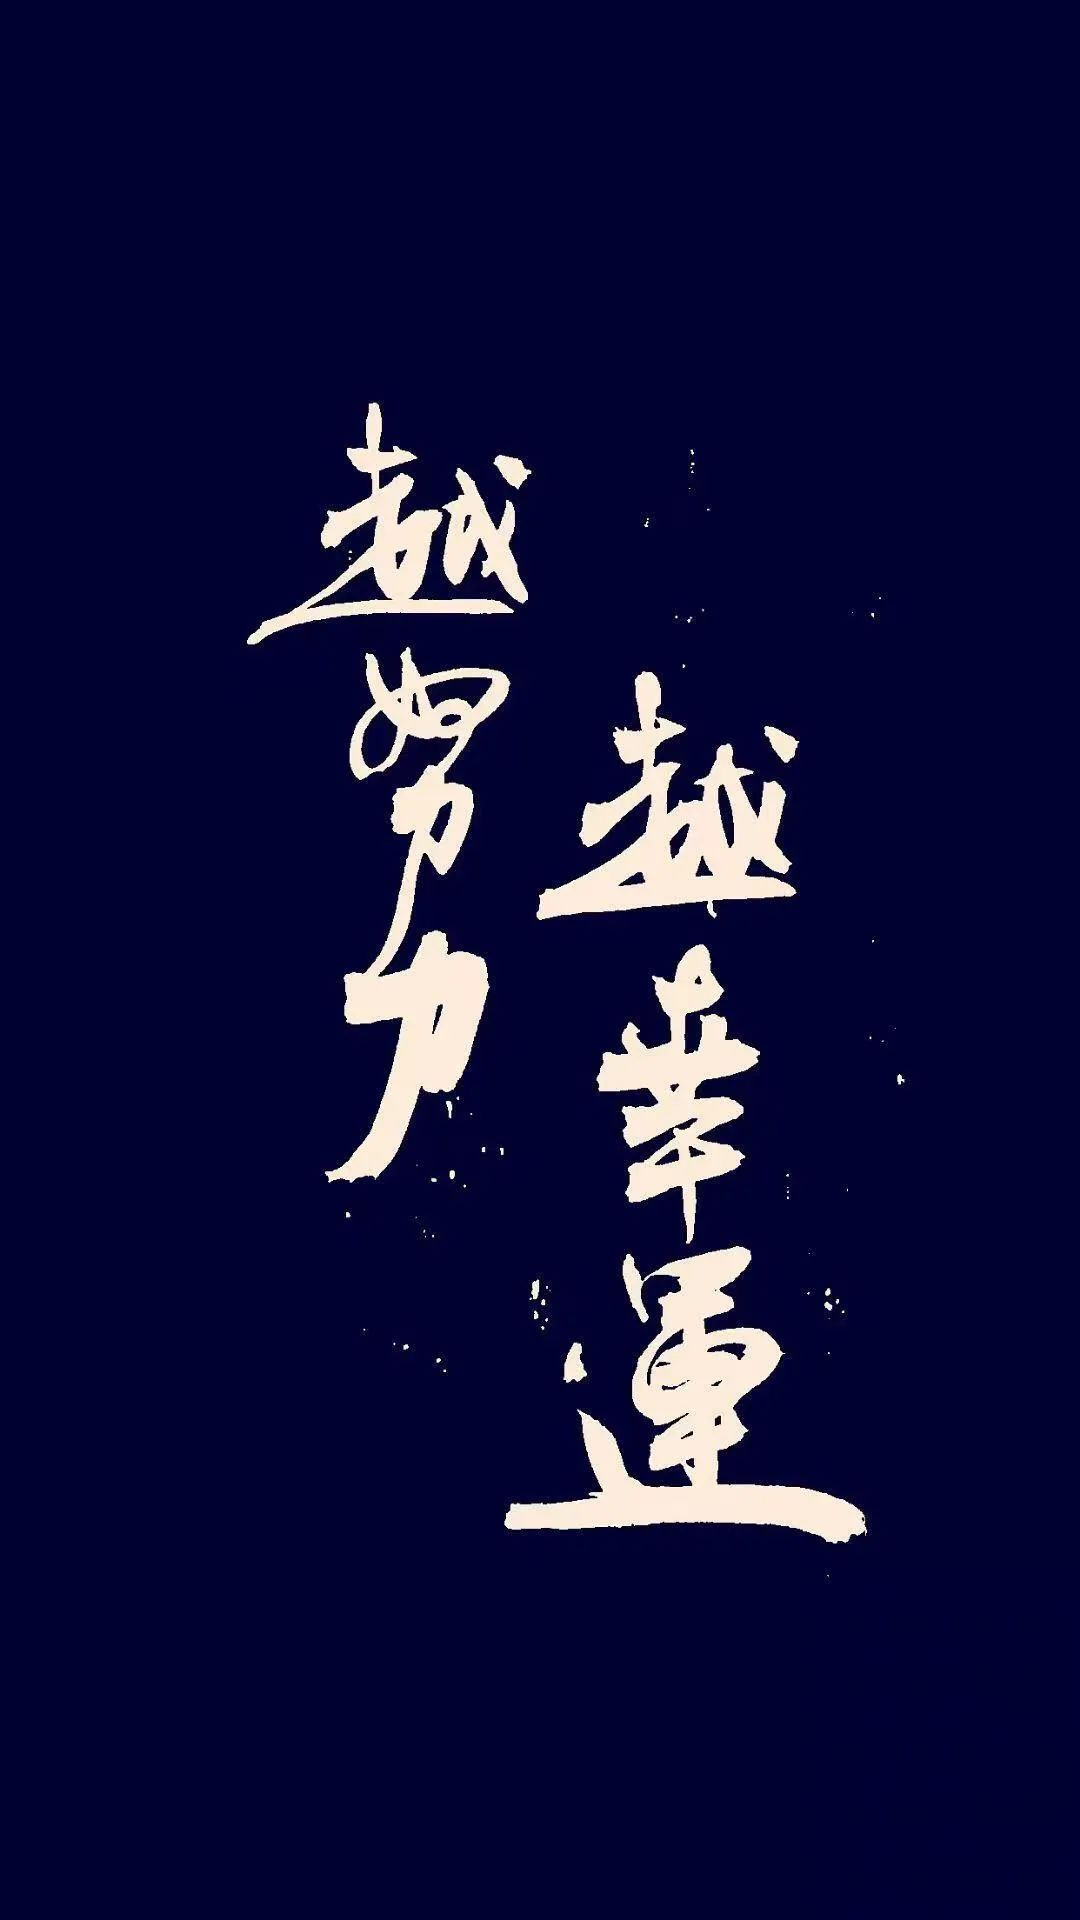 越努力
越幸運